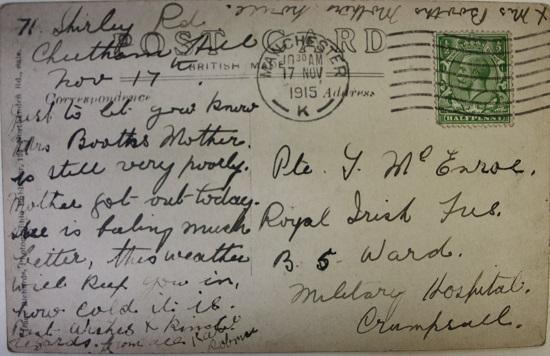 71. Shirley Rd
Cheetham Hill
Nov 17th.
POST CARD
BRITISH M
Correspondence
Address
MANCHESTER
10 30 AM
17 NOV
1915
K
HALFPENNY
& Mrs Booths Mothers home.
Just to let you know
Mrs Booths Mother.
is still very poorly.
Mother got out today.
She is looking much
better, this weather
will keep you in,
how cold it is.
Best Wishes & Kindest
Regards. from all
Pte. T. McEnroe.
Royal Irish Fus.
B. 5 Ward.
Military Hospital.
Crumpsall.